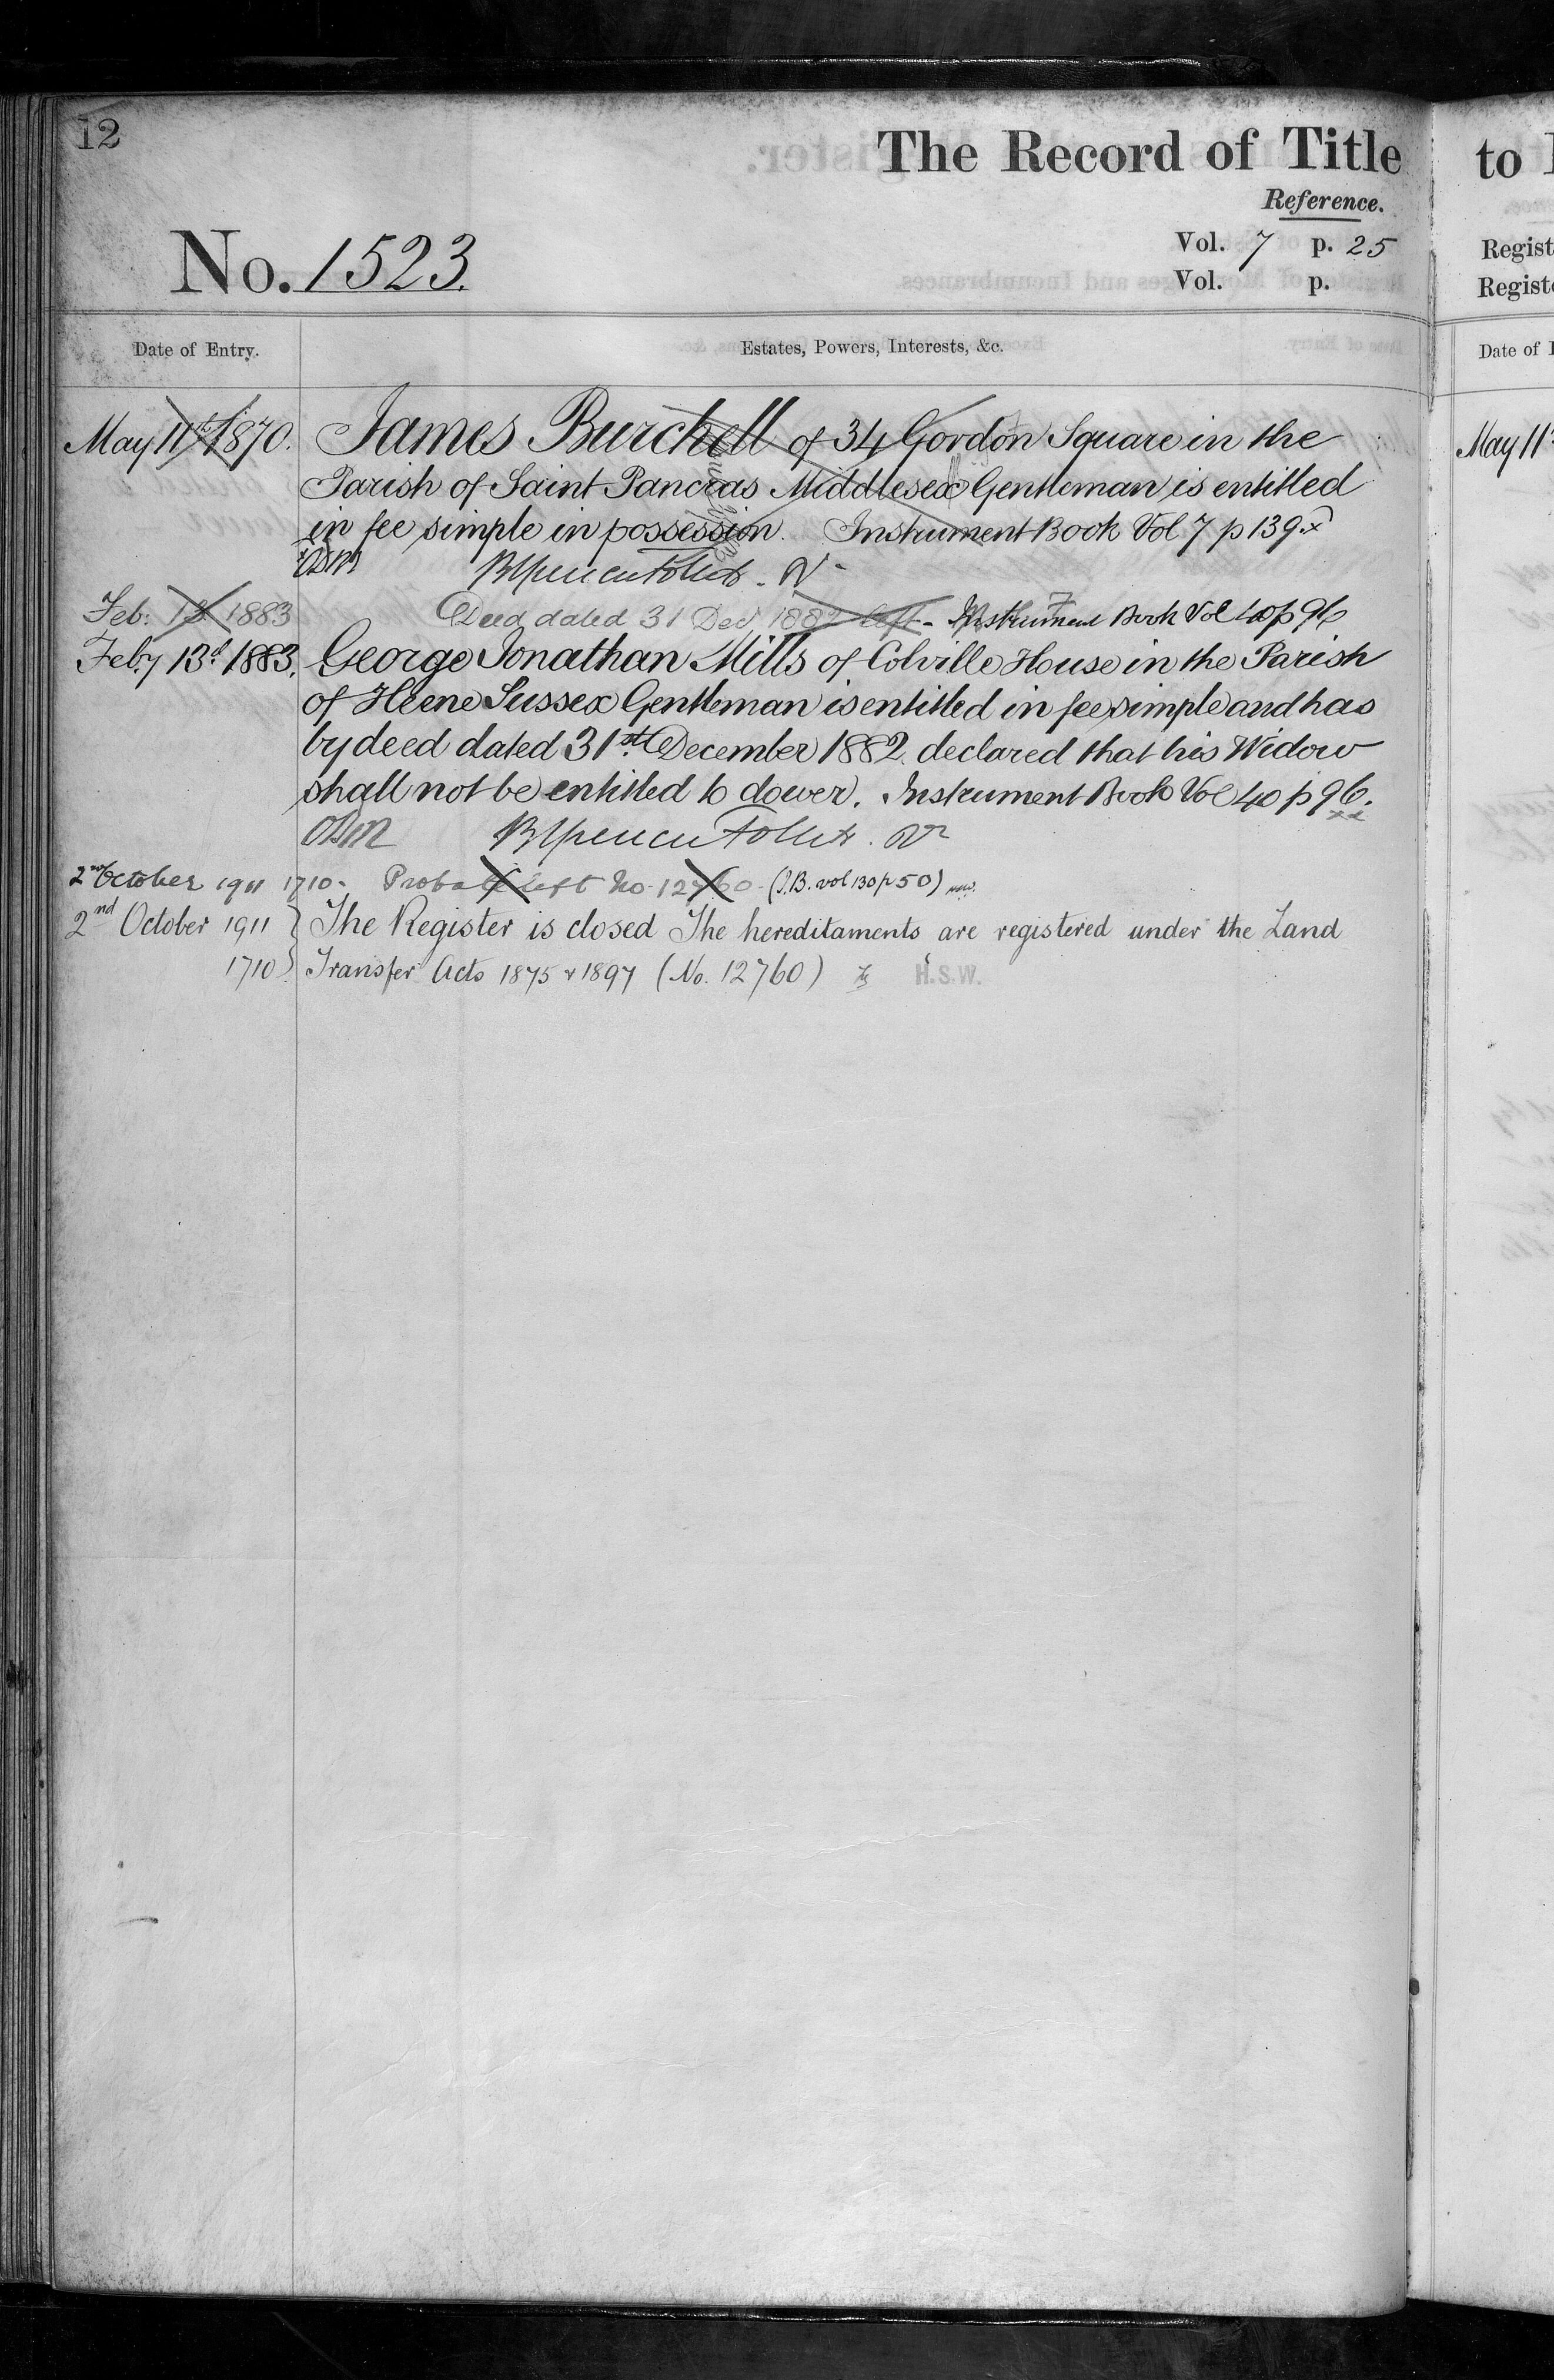 12
The Record of Title
Reference.
No. 1523.
Vol. 7 p. 25
Vol. p.
Date of Entry.
Estates, Powers, Interests, &c.
May 11th 1870. James Burchell of 34 Gordon Square in the
Parish of Saint Pancras Middlesex Gentleman is entitled
in fee simple in possession. Instrument Book Vol 7 p 139. x
Feb: 13 1883 Deed dated 31 Dec 1882 left - Instrument Book Vol 40 p 96
Feby 13d 1883. George Jonathan Mills of Colville House in the Parish
of Heene Sussex Gentleman is entitled in fee simple and has
by deed dated 31st December 1882 declared that his Widow
shall not be entitled to dower. Instrument Book Vol 40 p 96.
2nd October 1911 1710. Probate left No. 12760 - (I.B. vol 130 p 50)
2nd October 1911 } The Register is closed The hereditaments are registered under the Land
1710 } Transfer Acts 1875 & 1897 (No. 12760) H.S.W.
to
Regist
Regist
Date of
May 11